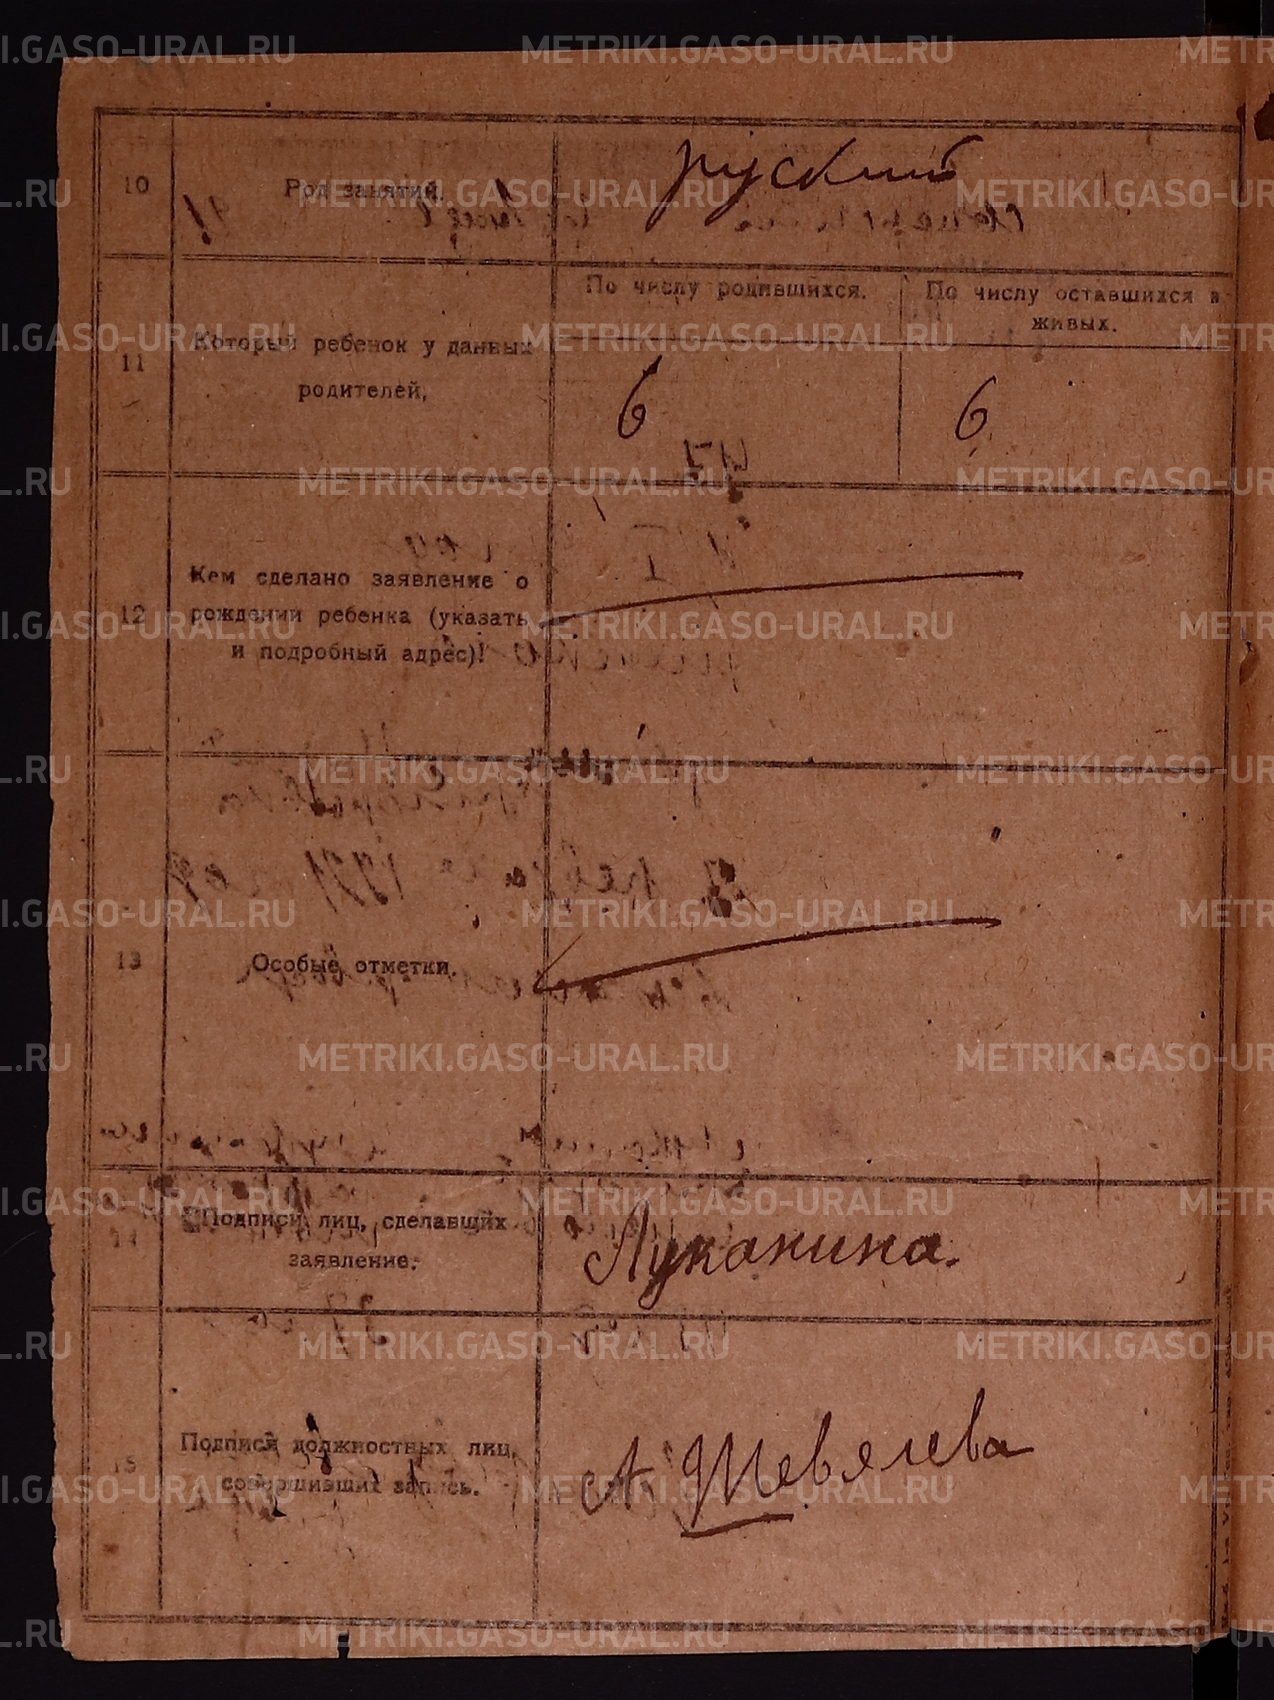 10
Род занятий.
руский
11
Который ребенок у данных
родителей,
По числу родившихся.
По числу оставшихся в
живых.
6
6
12
Кем сделано заявление о
рождении ребенка (указать
и подробный адрес)!
13
Особые отметки.
Подписи лиц, сделавших
заявление.
Луканина.
15
Подписи должностных лиц,
совершивших запись.
А Шевялева
METRIKI.GASO-URAL.RU